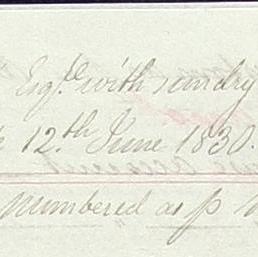 Esqre with sundry
12.th June 1830.
numbered as p